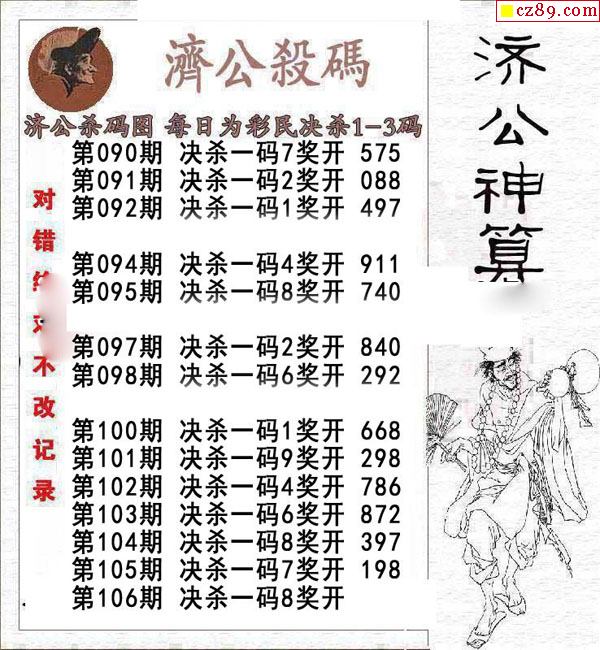 cz89.com
濟公殺碼
济公杀码图 每日为彩民决杀1-3码
第090期 决杀一码7奖开 575
第091期 决杀一码2奖开 088
第092期 决杀一码1奖开 497
第094期 决杀一码4奖开 911
第095期 决杀一码8奖开 740
第097期 决杀一码2奖开 840
第098期 决杀一码6奖开 292
第100期 决杀一码1奖开 668
第101期 决杀一码9奖开 298
第102期 决杀一码4奖开 786
第103期 决杀一码6奖开 872
第104期 决杀一码8奖开 397
第105期 决杀一码7奖开 198
第106期 决杀一码8奖开
对错不改记录
济公神算